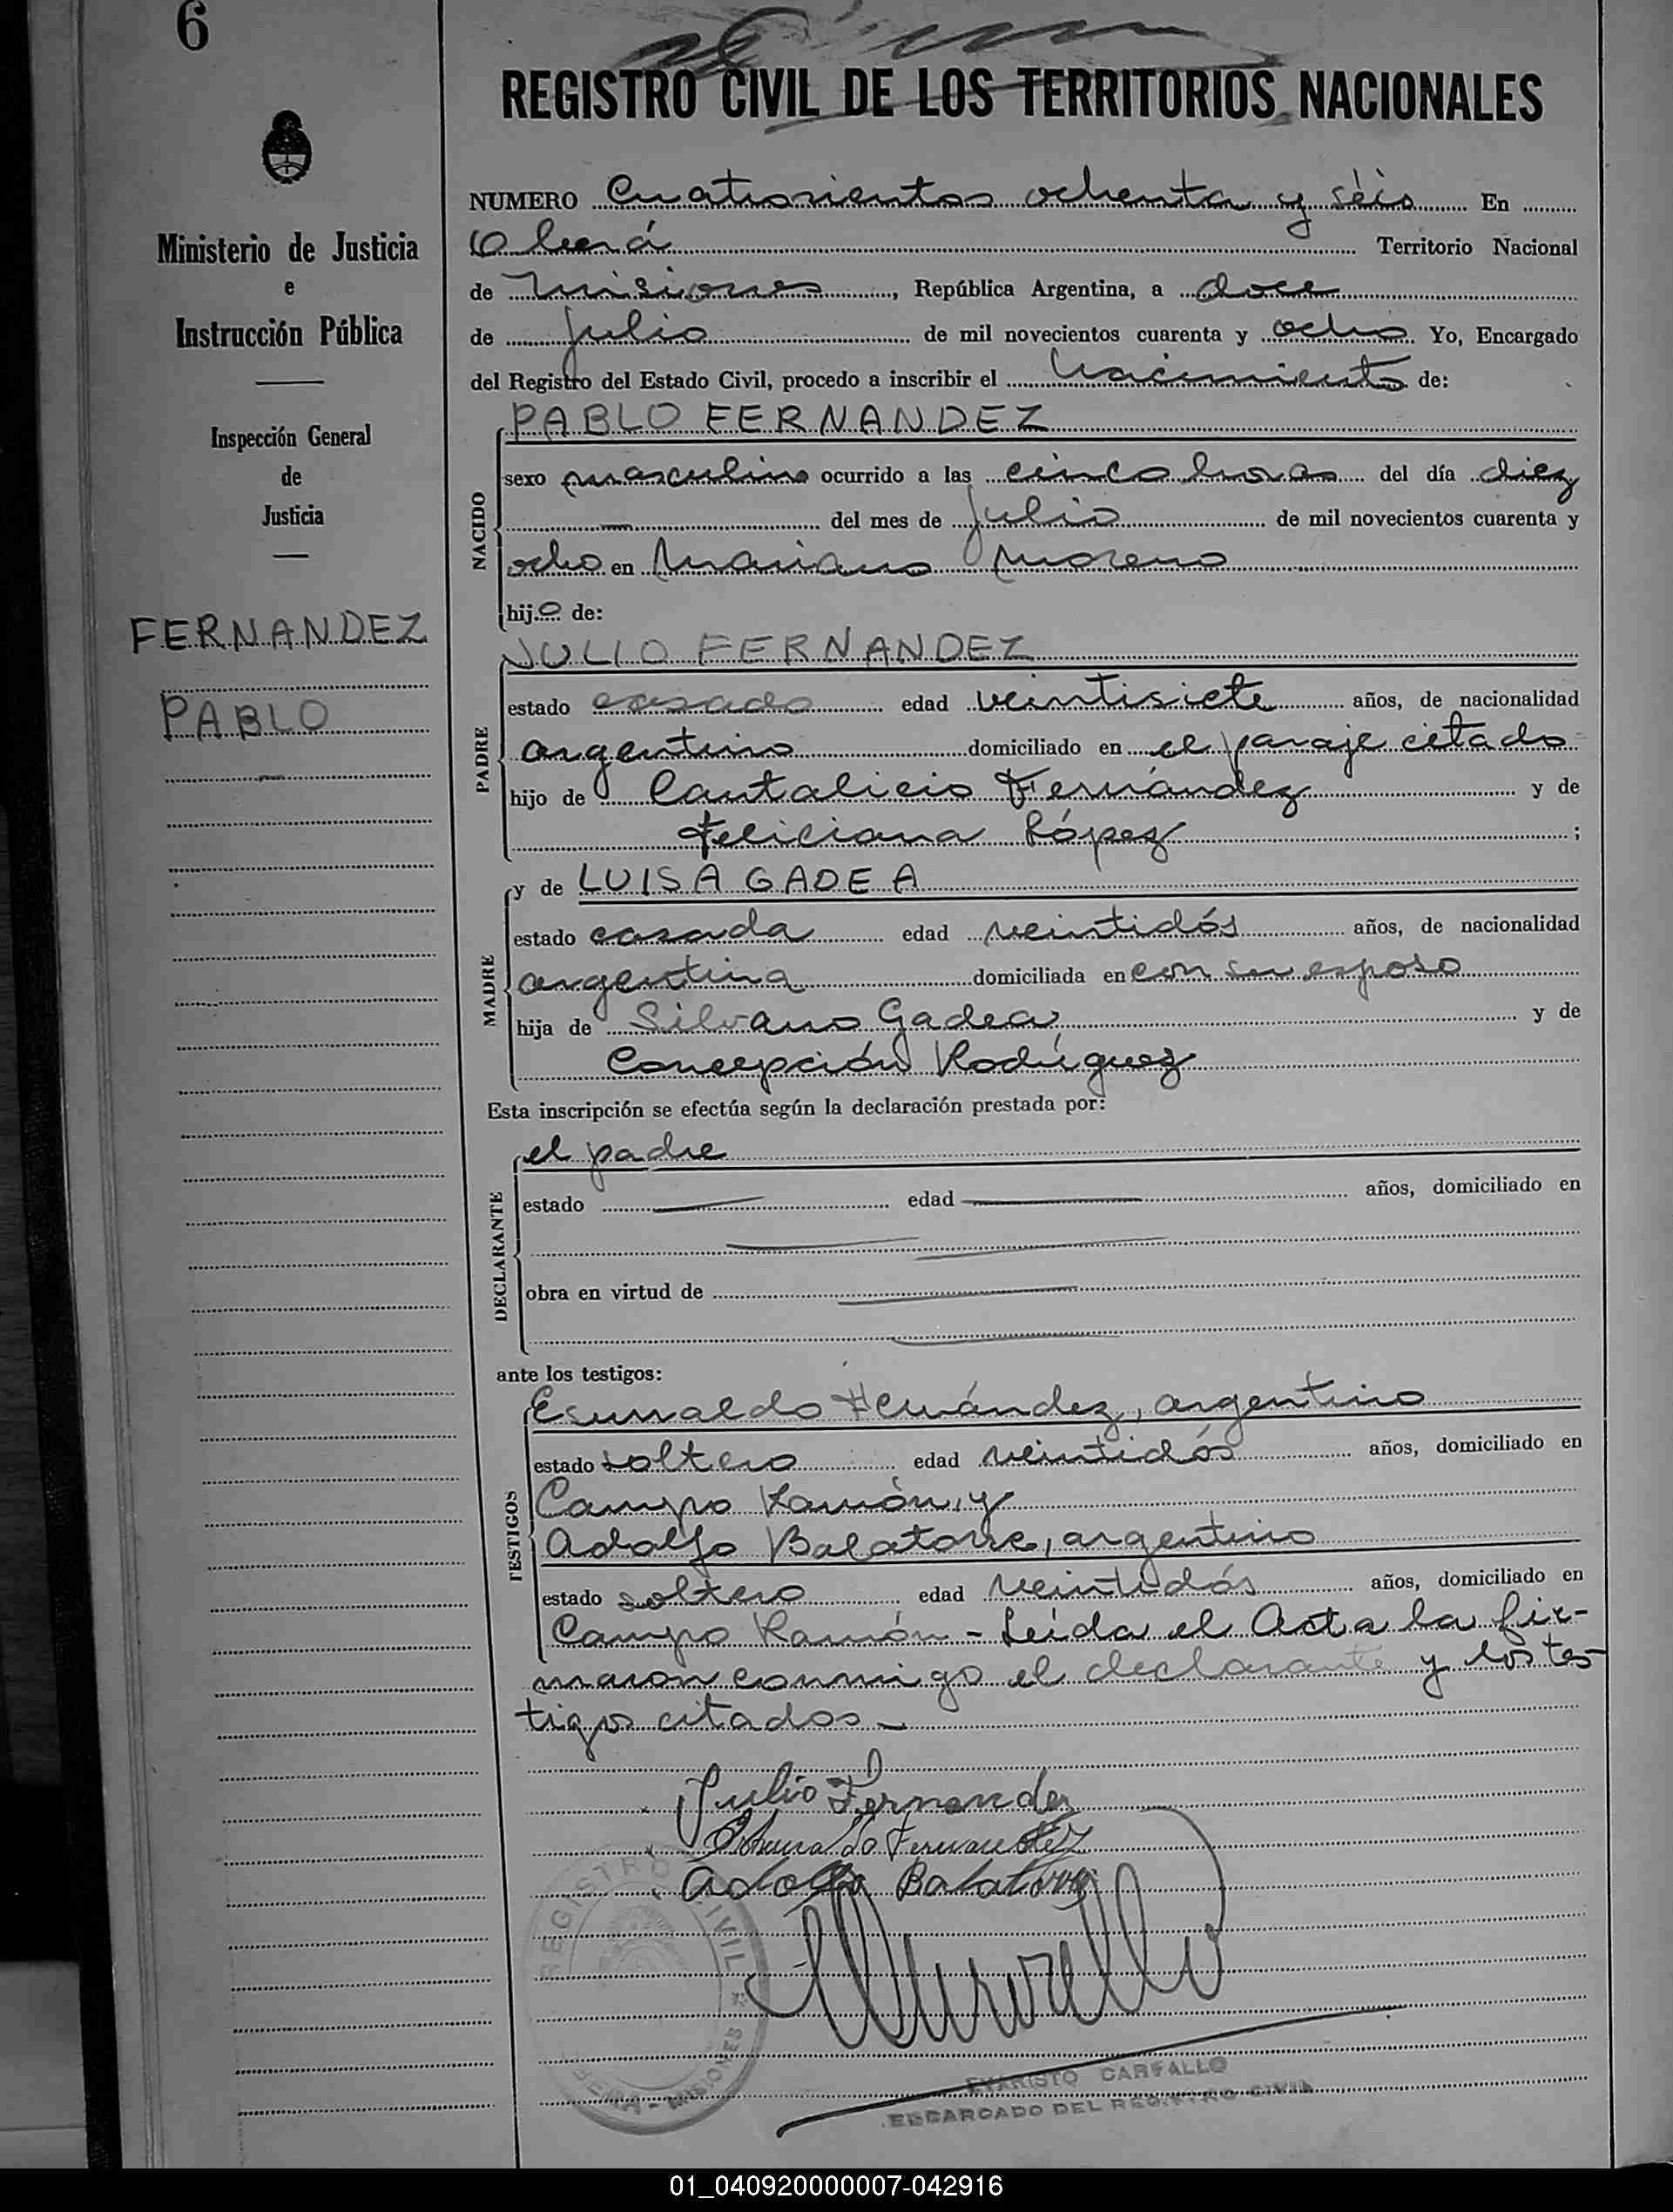 6
REGISTRO CIVIL DE LOS TERRITORIOS NACIONALES
Ministerio de Justicia
e
Instrucción Pública
Inspección General
de
Justicia
FERNANDEZ
PABLO
NUMERO Cuatrosientos ochenta y séis En
Oberá Territorio Nacional
de Misiones, República Argentina, a doce
de julio de mil novecientos cuarenta y ocho Yo, Encargado
del Registro del Estado Civil, procedo a inscribir el Nacimiento de:
PABLO FERNANDEZ
NACIDO
sexo masculino ocurrido a las cinco horas del día diez
del mes de julio de mil novecientos cuarenta y
ocho en Mariano Moreno
hijo de:
JULIO FERNANDEZ
PADRE
estado casado edad veintisiete años, de nacionalidad
argentino domiciliado en el paraje citado
hijo de Cantalicio Fernández y de
Feliciana López ;
y de LUISA GADEA
MADRE
estado casada edad veintidós años, de nacionalidad
argentina domiciliada en con su esposo
hija de Silvano Gadea y de
Concepción Rodríguez
Esta inscripción se efectúa según la declaración prestada por:
el padre
DECLARANTE
estado edad años, domiciliado en
obra en virtud de
ante los testigos:
TESTIGOS
Fernández, argentino
estado soltero edad veintidós años, domiciliado en
Campo Ramón, y
Adolfo Balatorre, argentino
estado soltero edad veintidós años, domiciliado en
Campo Ramón - Leída el Acta la fir-
maron conmigo el declarante y los tes-
tigos citados -
Julio Fernandez
Fernandez
Adolfo Balatorre
REGISTRO CIVIL
MISIONES
EVARISTO CARFALLO
ENCARGADO DEL REGISTRO CIVIL
01_040920000007-042916